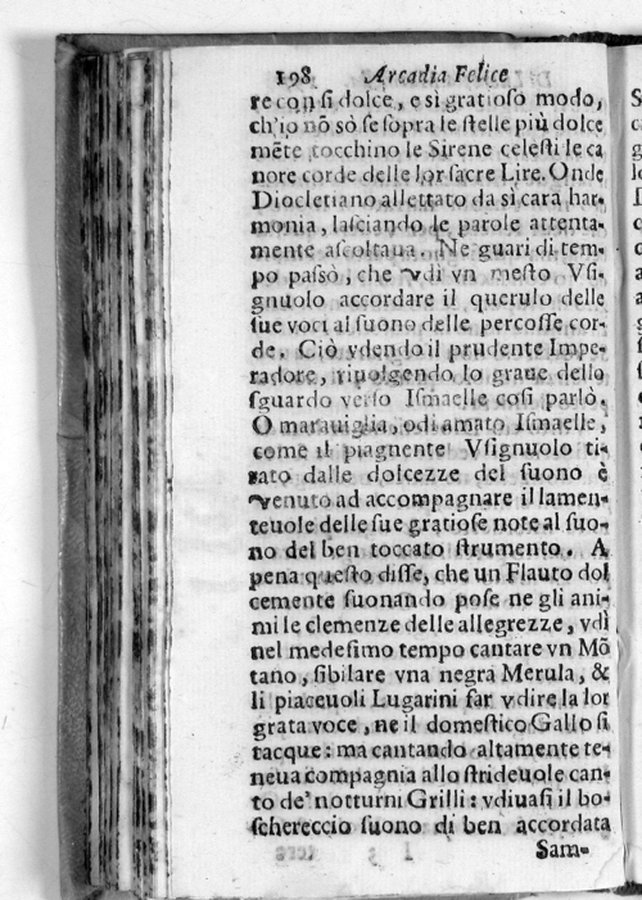 198 Arcadia Felice
re con ſi dolce, e sì gratioſo modo,
ch'io nõ sò ſe ſopra le ſtelle più dolce
mẽte tocchino le Sirene celeſti le ca
nore corde delle lor ſacre Lire. Onde
Diocletiano allettato da sì cara har-
monia, laſciando le parole attenta-
mente aſcoltaua. Ne guari di tem-
po paſsò, che vdì vn meſto Vſi-
gnuolo accordare il querulo delle
ſue voci al ſuono delle percoſſe cor-
de. Ciò vdendo il prudente Impe-
radore, riuolgendo lo graue dello
ſguardo verſo Iſmaelle coſi parlò.
O marauiglia, odi amato Iſmaelle,
come il piagnente Vſignuolo ti-
rato dalle dolcezze del ſuono è
venuto ad accompagnare il lamen-
teuole delle ſue gratioſe note al ſuo-
no del ben toccato ſtrumento. A
pena queſto diſſe, che un Flauto dol
cemente ſuonando poſe ne gli ani-
mi le clemenze delle allegrezze, vdì
nel medeſimo tempo cantare vn Mõ
tano, ſibilare vna negra Merula, &
li piaceuoli Lugarini far vdire la lor
grata voce, ne il domeſtico Gallo ſi
tacque: ma cantando altamente te-
neua compagnia allo ſtrideuole can-
to de' notturni Grilli: vdiuaſi il bo-
ſchereccio ſuono di ben accordata
Sam-